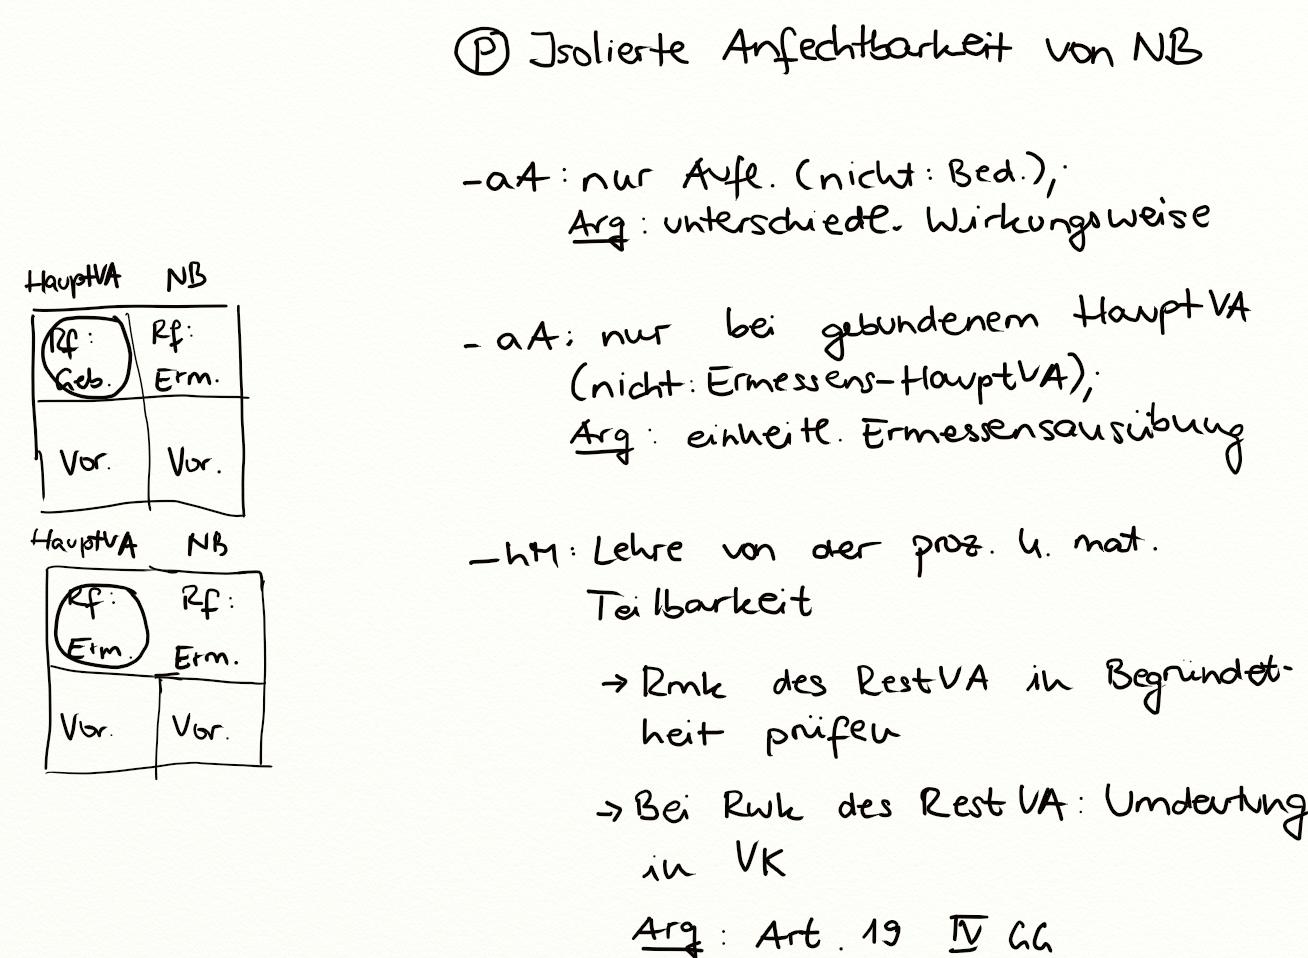 Ⓟ Isolierte Anfechtbarkeit von NB
- aA: nur Aufl. (nicht: Bed.);
Arg: unterschiedl. Wirkungsweise
- aA: nur bei gebundenem HauptVA
(nicht: Ermessens-HauptVA);
Arg: einheitl. Ermessensausübung
- hM: Lehre von der proz. u. mat.
Teilbarkeit
→ Rmk des RestVA in Begründet-
heit prüfen
→ Bei Rwk des RestVA: Umdeutung
in VK
Arg: Art. 19 IV GG
HauptVA NB
Rf: Rf:
Geb. Erm.
Vor. Vor.
HauptVA NB
Rf: Rf:
Erm. Erm.
Vor. Vor.